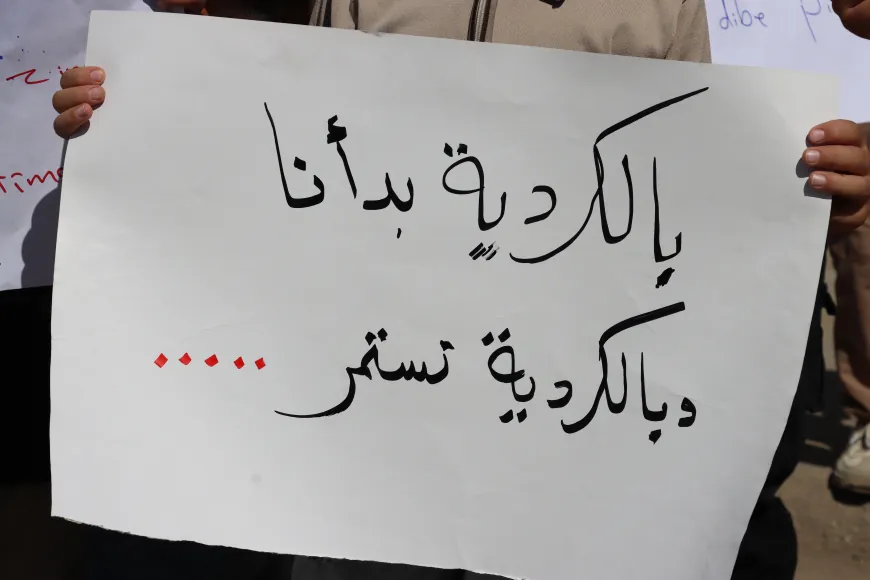 بالكردية بدأنا
وبالكردية نستمر .....
dibe